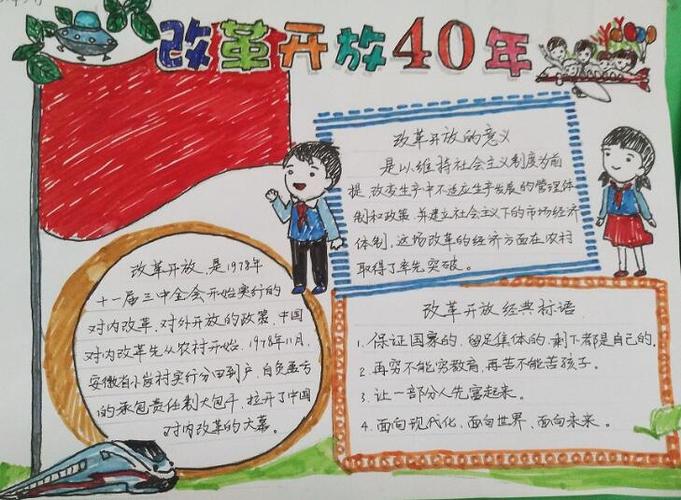 改革开放40年
改革开放的意义
是以维持社会主义制度为前
提,改变生产中不适应生产发展的管理体
制和政策,并建立社会主义下的市场经济
体制,这场改革的经济方面在农村
取得了率先突破。
改革开放,是1978年
十一届三中全会开始实行的
对内改革、对外开放的政策。中国
对内改革先从农村开始,1978年11月,
安徽省小岗村实行分田到户,自负盈亏
的承包责任制大包干,拉开了中国
对内改革的大幕。
改革开放经典标语
1.保证国家的,留足集体的,剩下都是自己的。
2.再穷不能穷教育,再苦不能苦孩子。
3.让一部分人先富起来。
4.面向现代化、面向世界、面向未来。